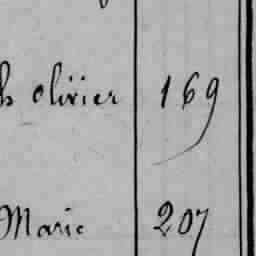 olivier 169
Marie 207